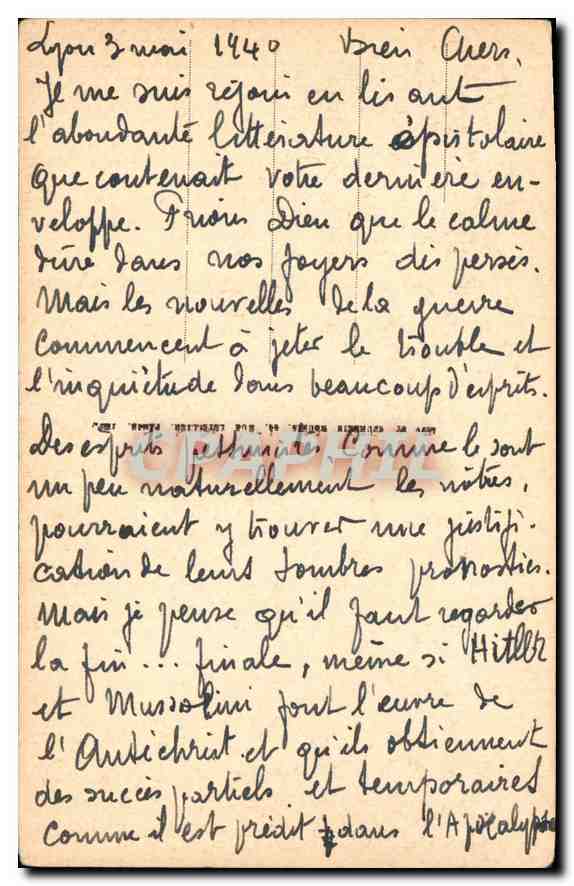 Lyon 3 mai 1940 bien Chers,
Je me suis réjoui en lisant
l'abondante littérature épistolaire
que contenait votre dernière en-
veloppe. Prions Dieu que le calme
dure dans nos foyers dispersés.
Mais les nouvelles de la guerre
commencent à jeter le trouble et
l'inquiétude dans beaucoup d'esprits.
Des esprits pessimistes, comme le sont
un peu naturellement les nôtres,
pourraient y trouver une justifi-
cation de leurs sombres pronostics.
Mais je pense qu'il faut regarder
la fin... finale, même si Hitler
et Mussolini font l'œuvre de
l'Antéchrist et qu'ils obtiennent
des succès partiels et temporaires
comme il est prédit dans l'Apocalypse
CPAPHIL